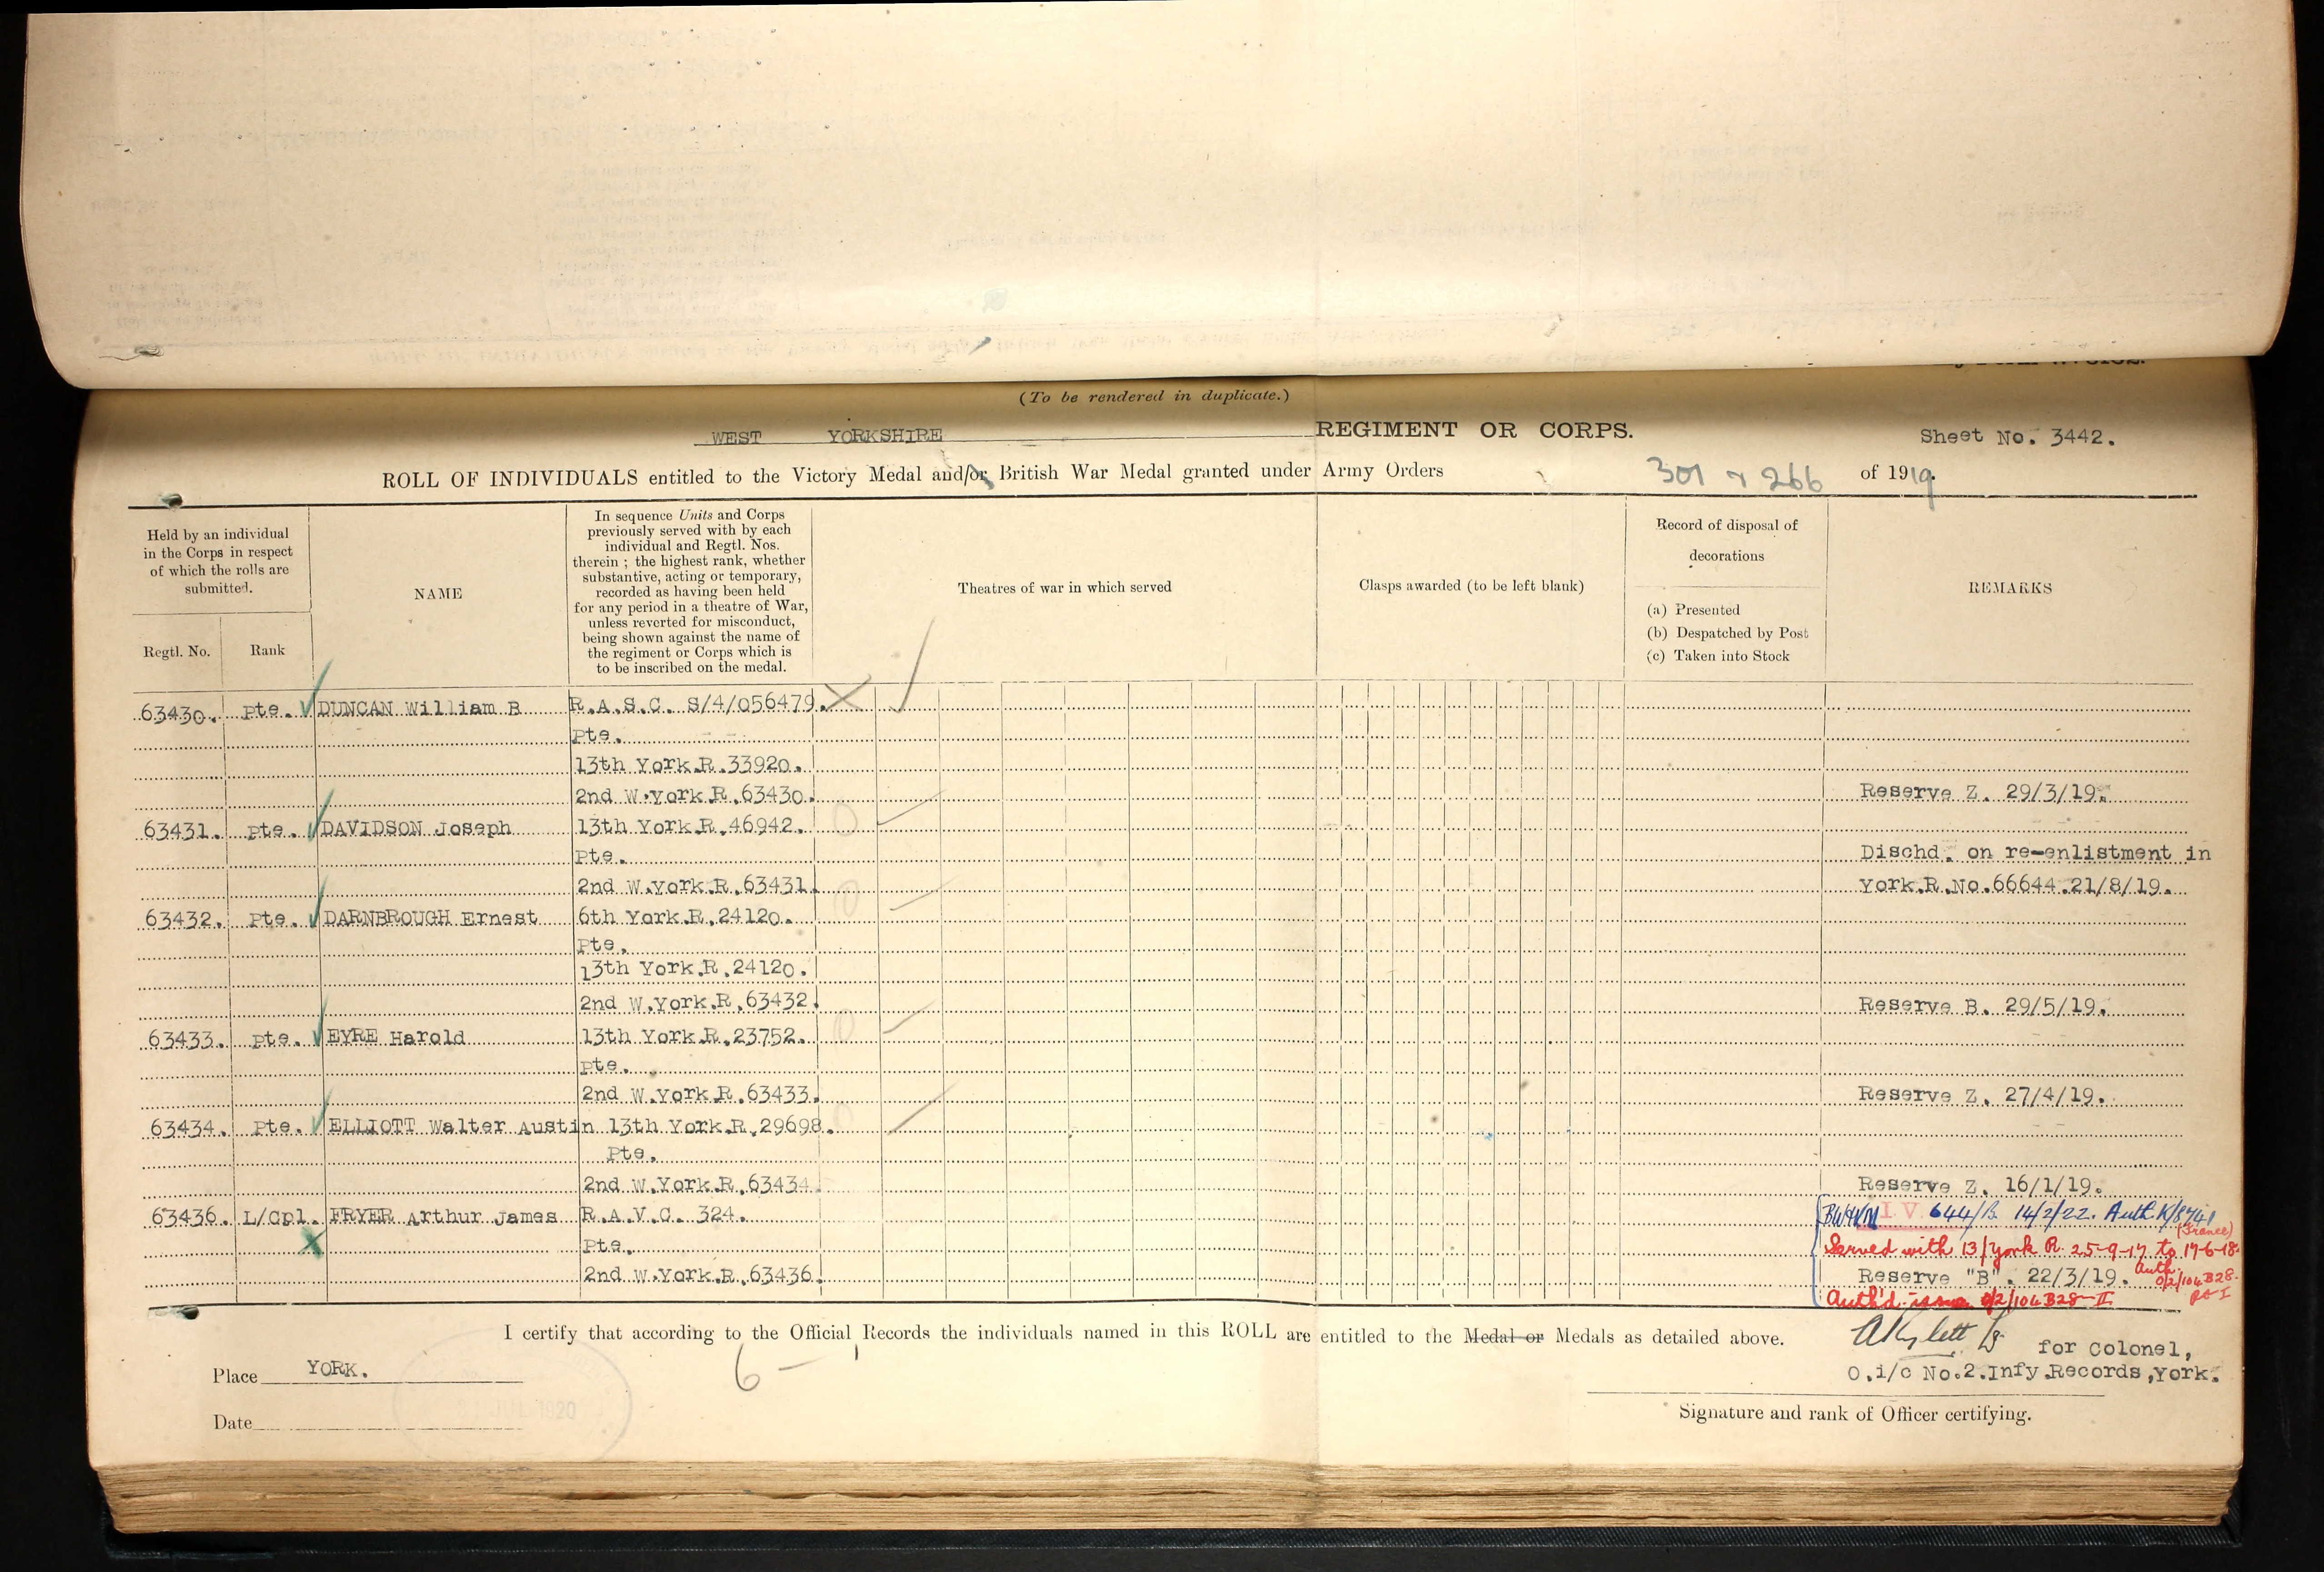 (To be rendered in duplicate.)
WEST YORKSHIRE REGIMENT OR CORPS. Sheet No. 3442.
ROLL OF INDIVIDUALS entitled to the Victory Medal and/or British War Medal granted under Army Orders 301 & 266 of 1919.
Held by an individual
in the Corps in respect
of which the rolls are
submitted.
Regtl. No.
Rank
NAME
In sequence Units and Corps
previously served with by each
individual and Regtl. Nos.
therein ; the highest rank, whether
substantive, acting or temporary,
recorded as having been held
for any period in a theatre of War,
unless reverted for misconduct,
being shown against the name of
the regiment or Corps which is
to be inscribed on the medal.
Theatres of war in which served
Clasps awarded (to be left blank)
Record of disposal of
decorations
(a) Presented
(b) Despatched by Post
(c) Taken into Stock
REMARKS
63430. Pte. DUNCAN William B R.A.S.C. S/4/056479.
Pte.
13th York.R.33920.
2nd W.York.R.63430. Reserve Z. 29/3/19.
63431. Pte. DAVIDSON Joseph 13th York.R.46942.
Pte. Dischd. on re-enlistment in
2nd W.York.R.63431. York.R.No.66644.21/8/19.
63432. Pte. DARNBROUGH Ernest 6th York.R.24120.
Pte.
13th York.R.24120.
2nd W.York.R.63432. Reserve B. 29/5/19.
63433. Pte. EYRE Harold 13th York.R.23752.
Pte.
2nd W.York.R.63433. Reserve Z. 27/4/19.
63434. Pte. ELLIOTT Walter Austin 13th York.R.29698.
Pte.
2nd W.York.R.63434. Reserve Z. 16/1/19.
63436. L/Cpl. FRYER Arthur James R.A.V.C. 324. BW&VM I.V. 644/B. 14/2/22. Auth. K/8741
(France)
Pte. Served with 13/York R. 25-9-17 to 17-6-18.
2nd W.York.R.63436. Reserve "B". 22/3/19. Auth. 0/2/104 B28. pt I
Auth'd issue 0/2/104B28-II
I certify that according to the Official Records the individuals named in this ROLL are entitled to the Medal or Medals as detailed above.
for Colonel,
O.i/c No.2.Infy.Records,York.
Place YORK.
6
Date
1920
Signature and rank of Officer certifying.